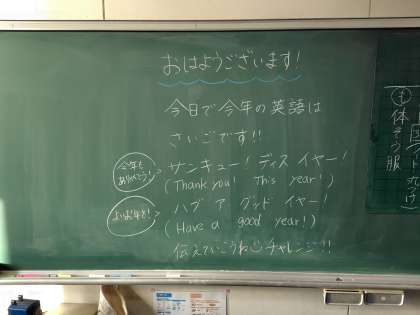 おはようございます!
今日で今年の英語は
さいごです!!
今年も
ありがとう!
サンキュー! ディス イヤー!
(Thank you! This year!)
よいお年を!
ハブ ア グッド イヤー!
(Have a good year!)
伝えていこうね☺チャレンジ!!
も
体そう服